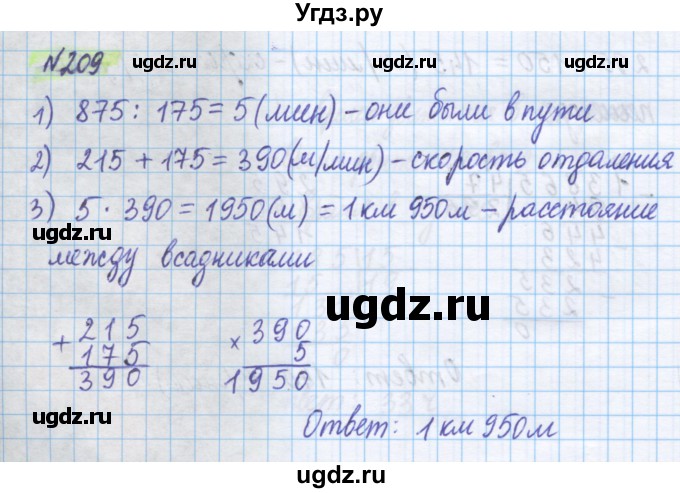 Угдз.ру
№209
1) 875 : 175 = 5 (мин) - они были в пути
2) 215 + 175 = 390 (м/мин) - скорость отдаления
3) 5 · 390 = 1950 (м) = 1 км 950 м - расстояние
между всадниками
+ 215
175
390
× 390
5
1950
Ответ: 1 км 950 м
ugdz.ru
ugdz.ru
ugdz.ru
ugdz.ru
ugdz.ru
ugdz.ru
ugdz.ru
ugdz.ru
ugdz.ru
ugdz.ru
ugdz.ru
ugdz.ru
ugdz.ru